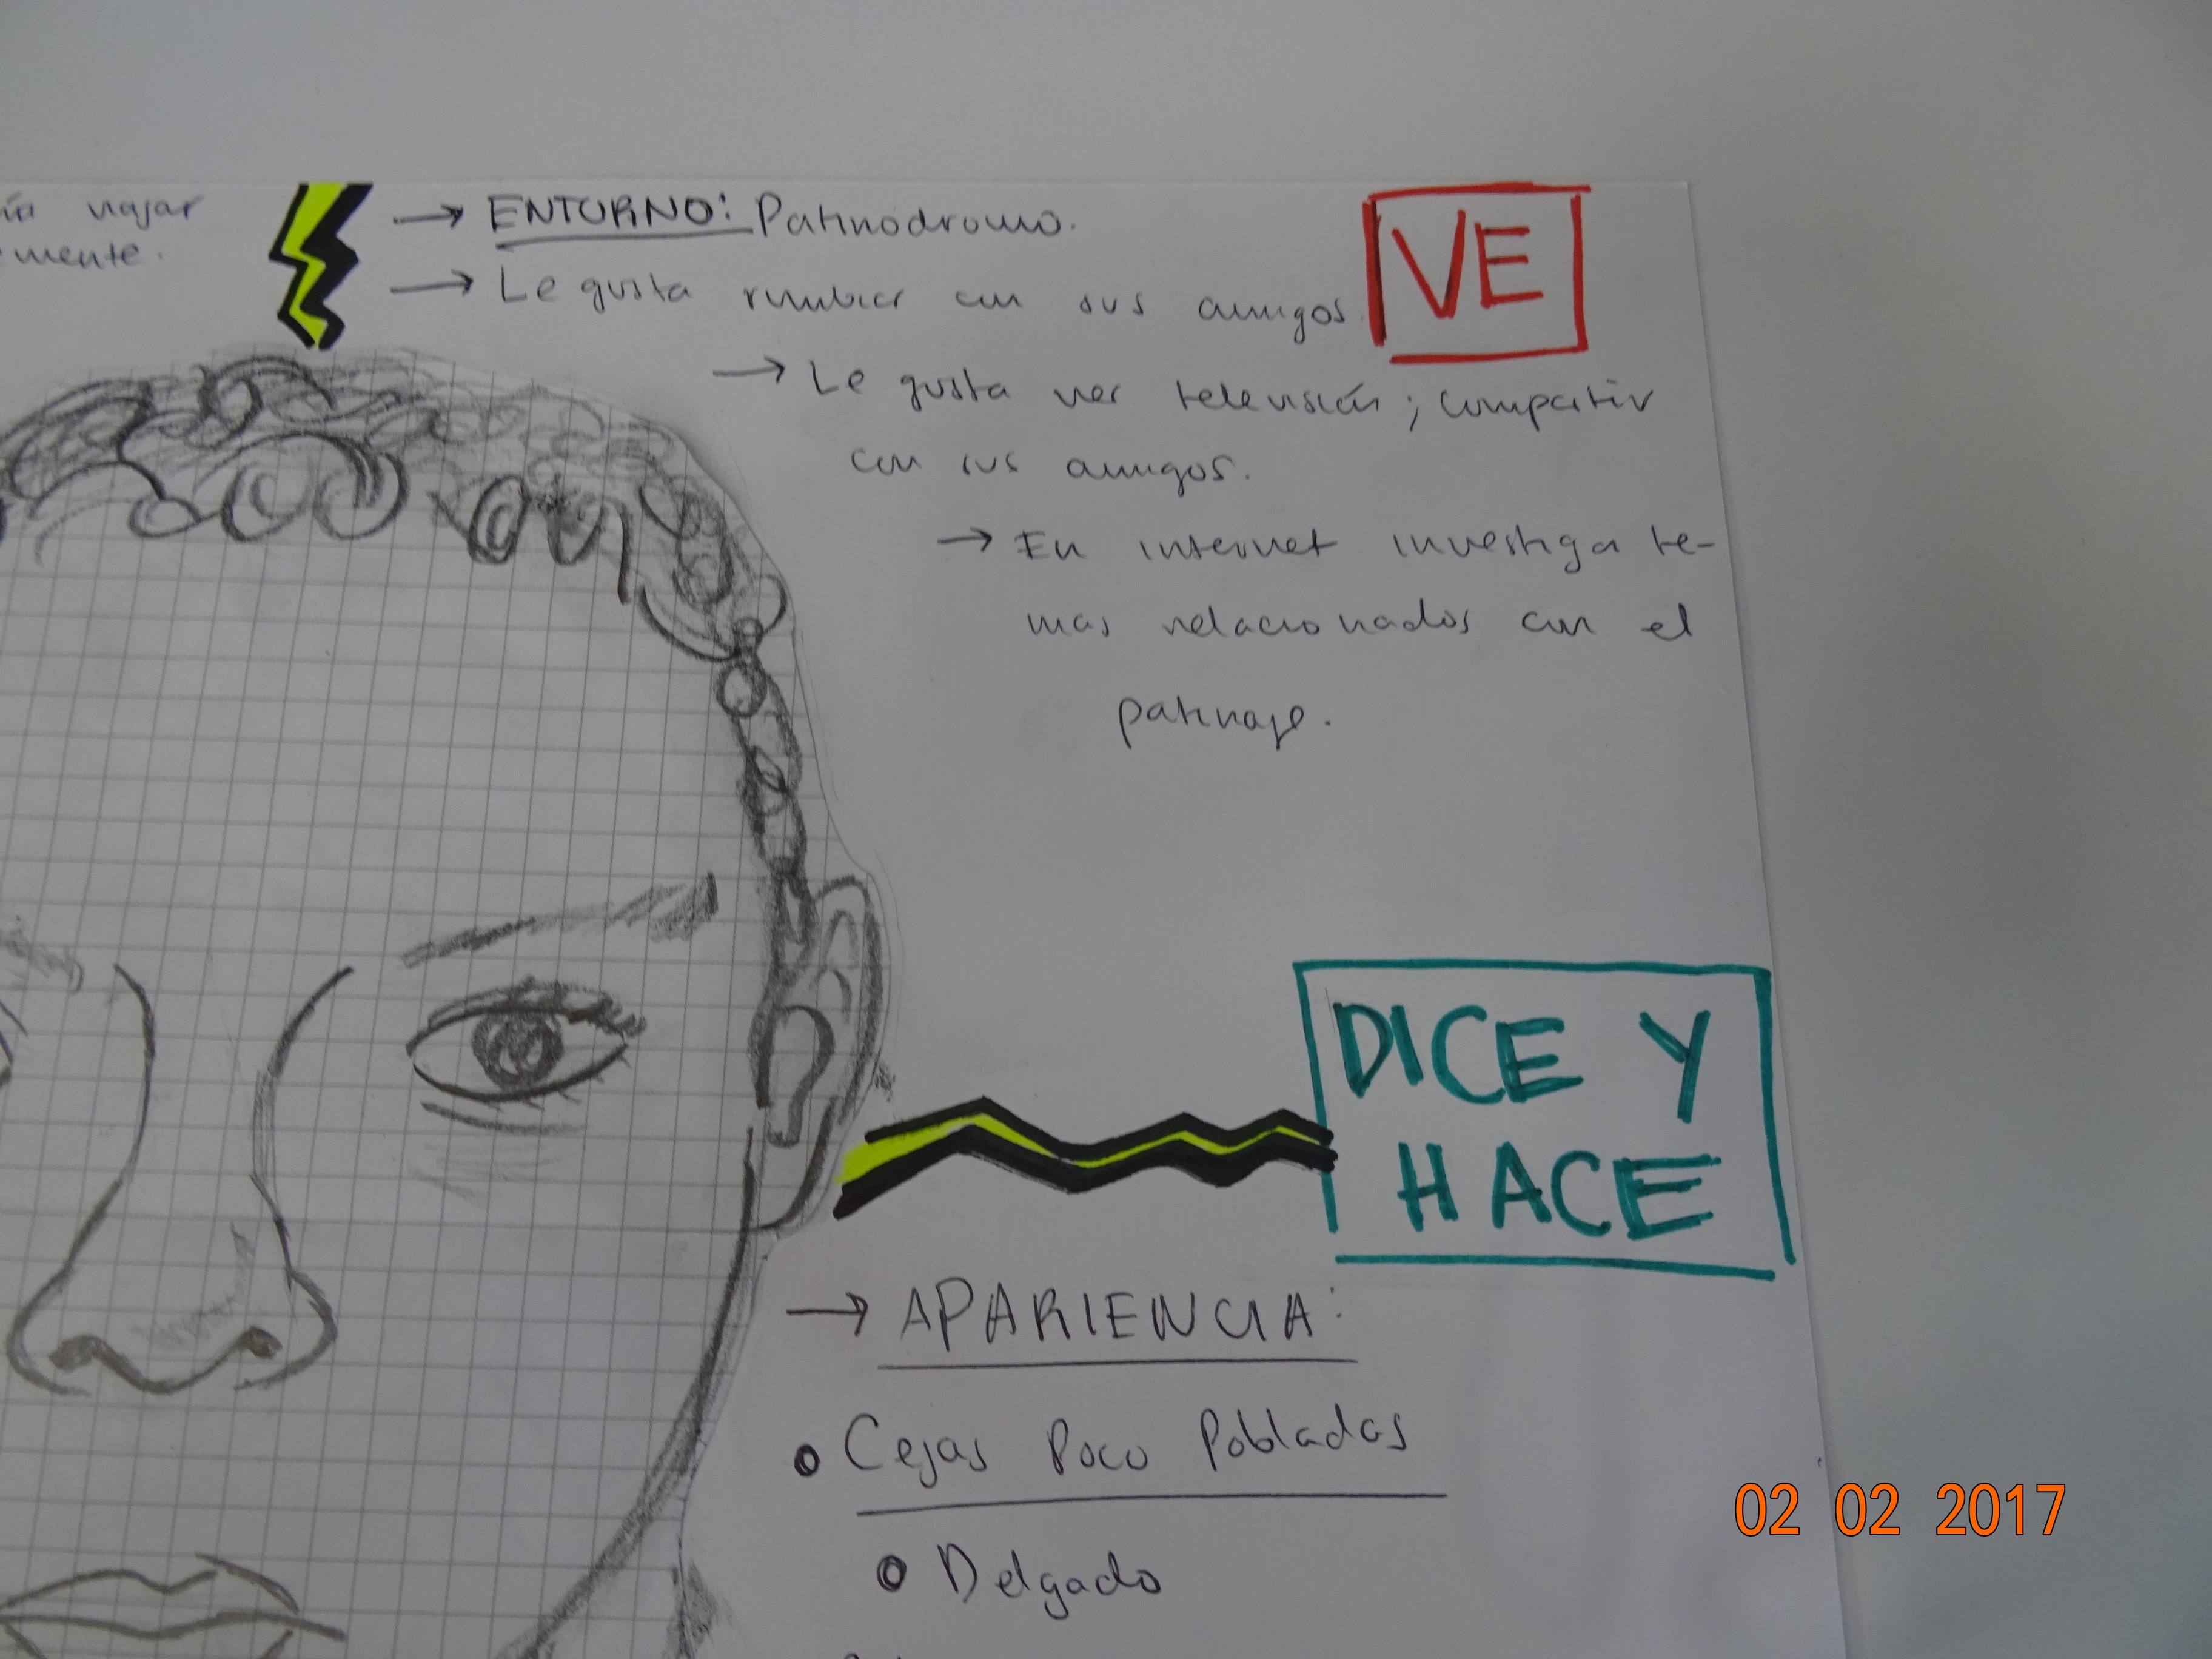 viajar
emente.
→ ENTORNO: Patinódromo.
→ Le gusta rumbiar con sus amigos.
VE
→ Le gusta ver televisión; compartir
con sus amigos.
→ En internet investiga te-
mas relacionados con el
patinaje.
DICE Y
HACE
→ APARIENCIA:
Cejas Poco Pobladas
Delgado
02 02 2017